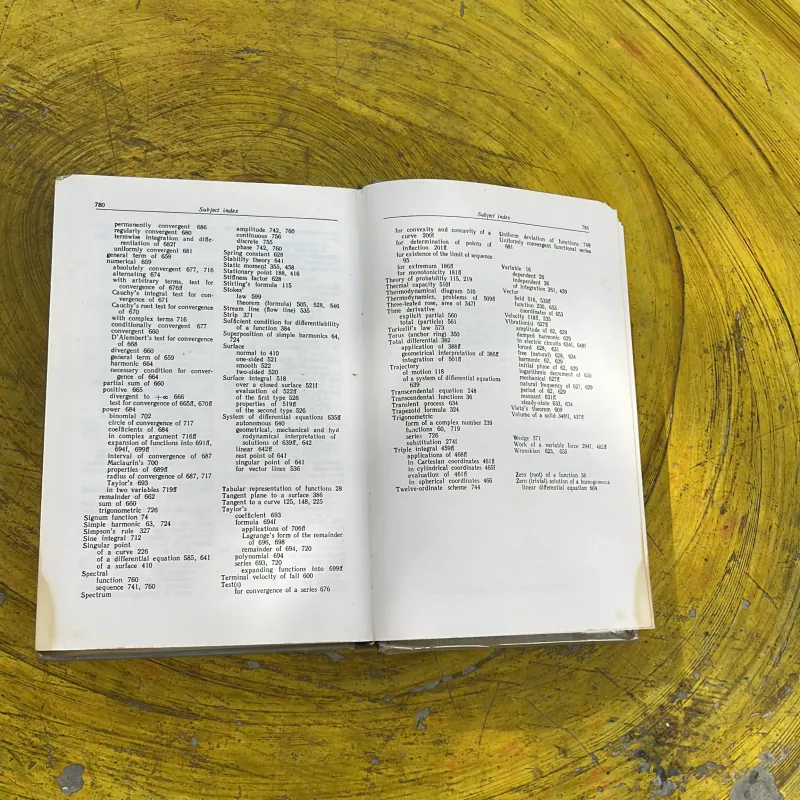 780
Subject index
permanently convergent 686
regularly convergent 680
termwise integration and diffe-
rentiation of 682f
uniformly convergent 681
general term of 659
numerical 659
absolutely convergent 677, 716
alternating 674
with arbitrary terms, test for
convergence of 676ff
Cauchy's integral test for con-
vergence of 671
Cauchy's root test for convergence
of 670
with complex terms 716
conditionally convergent 677
convergent 660
D'Alembert's test for convergence
of 668
divergent 660
general term of 659
harmonic 664
necessary condition for conver-
gence of 664
partial sum of 660
positive 665
divergent to +∞ 666
test for convergence of 665ff, 670ff
power 684
binomial 702
circle of convergence of 717
coefficients of 684
in complex argument 716ff
expansion of functions into 691ff,
694f, 699ff
interval of convergence of 687
Maclaurin's 700
properties of 689ff
radius of convergence of 687, 717
Taylor's 693
in two variables 719ff
remainder of 662
sum of 660
trigonometric 726
Signum function 74
Simple harmonic 63, 724
Simpson's rule 327
Sine integral 712
Singular point
of a curve 226
of a differential equation 585, 641
of a surface 410
Spectral
function 760
sequence 741, 760
Spectrum
amplitude 742, 760
continuous 756
discrete 755
phase 742, 760
Spring constant 628
Stability theory 641
Static moment 355, 458
Stationary point 188, 416
Stiffness factor 628
Stirling's formula 115
Stokes'
law 599
theorem (formula) 505, 528, 546
Stream line (flow line) 535
Strip 371
Sufficient condition for differentiability
of a function 384
Superposition of simple harmonics 64,
724
Surface
normal to 410
one-sided 521
smooth 522
two-sided 520
Surface integral 518
over a closed surface 521f
evaluation of 522ff
of the first type 526
properties of 519ff
of the second type 526
System of differential equations 635ff
autonomous 640
geometrical, mechanical and hyd
rodynamical interpretation of
solutions of 639ff, 642
linear 642ff
rest point of 641
singular point of 641
for vector lines 536
Tabular representation of functions 28
Tangent plane to a surface 386
Tangent to a curve 125, 148, 225
Taylor's
coefficient 693
formula 694f
applications of 706ff
Lagrange's form of the remainder
of 696, 698
remainder of 694, 720
polynomial 694
series 693, 720
expanding functions into 699ff
Terminal velocity of fall 600
Test(s)
for convergence of a series 676
Subject index
781
for convexity and concavity of a
curve 200f
for determination of points of
inflection 201ff
for existence of the limit of sequence
95
for extremum 186ff
for monotonicity 181ff
Theory of probability 115, 219
Thermal capacity 510f
Thermodynamical diagram 510
Thermodynamics, problems of 509ff
Three-leafed rose, area of 347f
Time derivative
explicit partial 560
total (particle) 561
Toricelli's law 573
Torus (anchor ring) 350
Total differential 382
application of 388ff
geometrical interpretation of 386ff
integration of 501ff
Trajectory
of motion 118
of a system of differential equations
639
Transcendental equation 248
Transcendental functions 36
Transient process 634
Trapezoid formula 324
Trigonometric
form of a complex number 239
functions 66, 719
series 726
substitution 274f
Triple integral 459ff
applications of 468ff
in Cartesian coordinates 461ff
in cylindrical coordinates 465f
evaluation of 461ff
in spherical coordinates 466
Twelve-ordinate scheme 744
Uniform deviation of functions 749
Uniformly convergent functional series
681
Variable 16
dependent 26
independent 26
of integration 261, 439
Vector
field 516, 533ff
function 230, 653
coordinates of 653
Velocity 118ff, 235
Vibration(s) 627ff
amplitude of 62, 629
damped harmonic 629
in electric circuits 634f, 648f
forced 628, 631
free (natural) 628, 634
harmonic 62, 629
initial phase of 62, 629
logarithmic decrement of 630
mechanical 627ff
natural frequency of 627, 629
period of 62, 629
resonant 631ff
steady-state 633, 634
Vieta's theorem 609
Volume of a solid 348ff, 437ff
Wedge 371
Work of a variable force 294f, 482ff
Wronskian 623, 656
Zero (root) of a function 38
Zero (trivial) solution of a homogeneous
linear differential equation 604